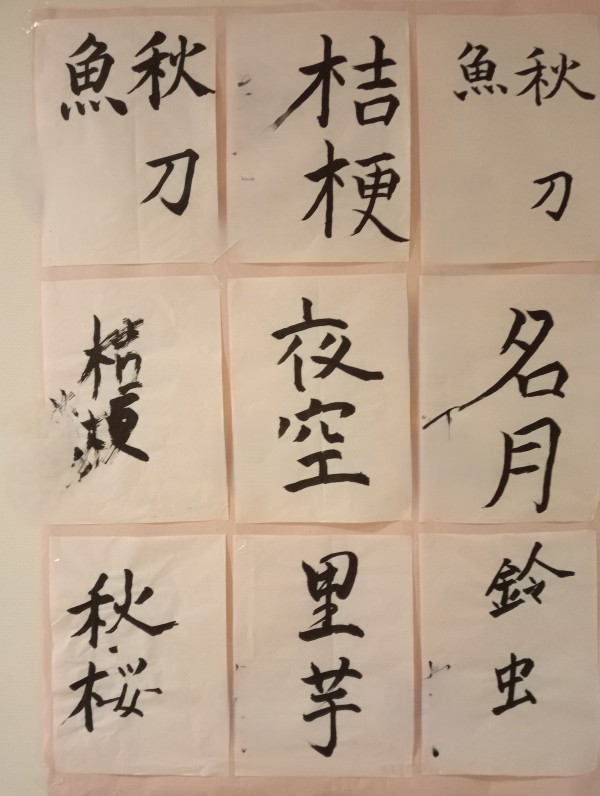 秋刀
魚
桔梗
秋刀
魚
桔梗
夜空
名月
秋桜
里芋
鈴虫